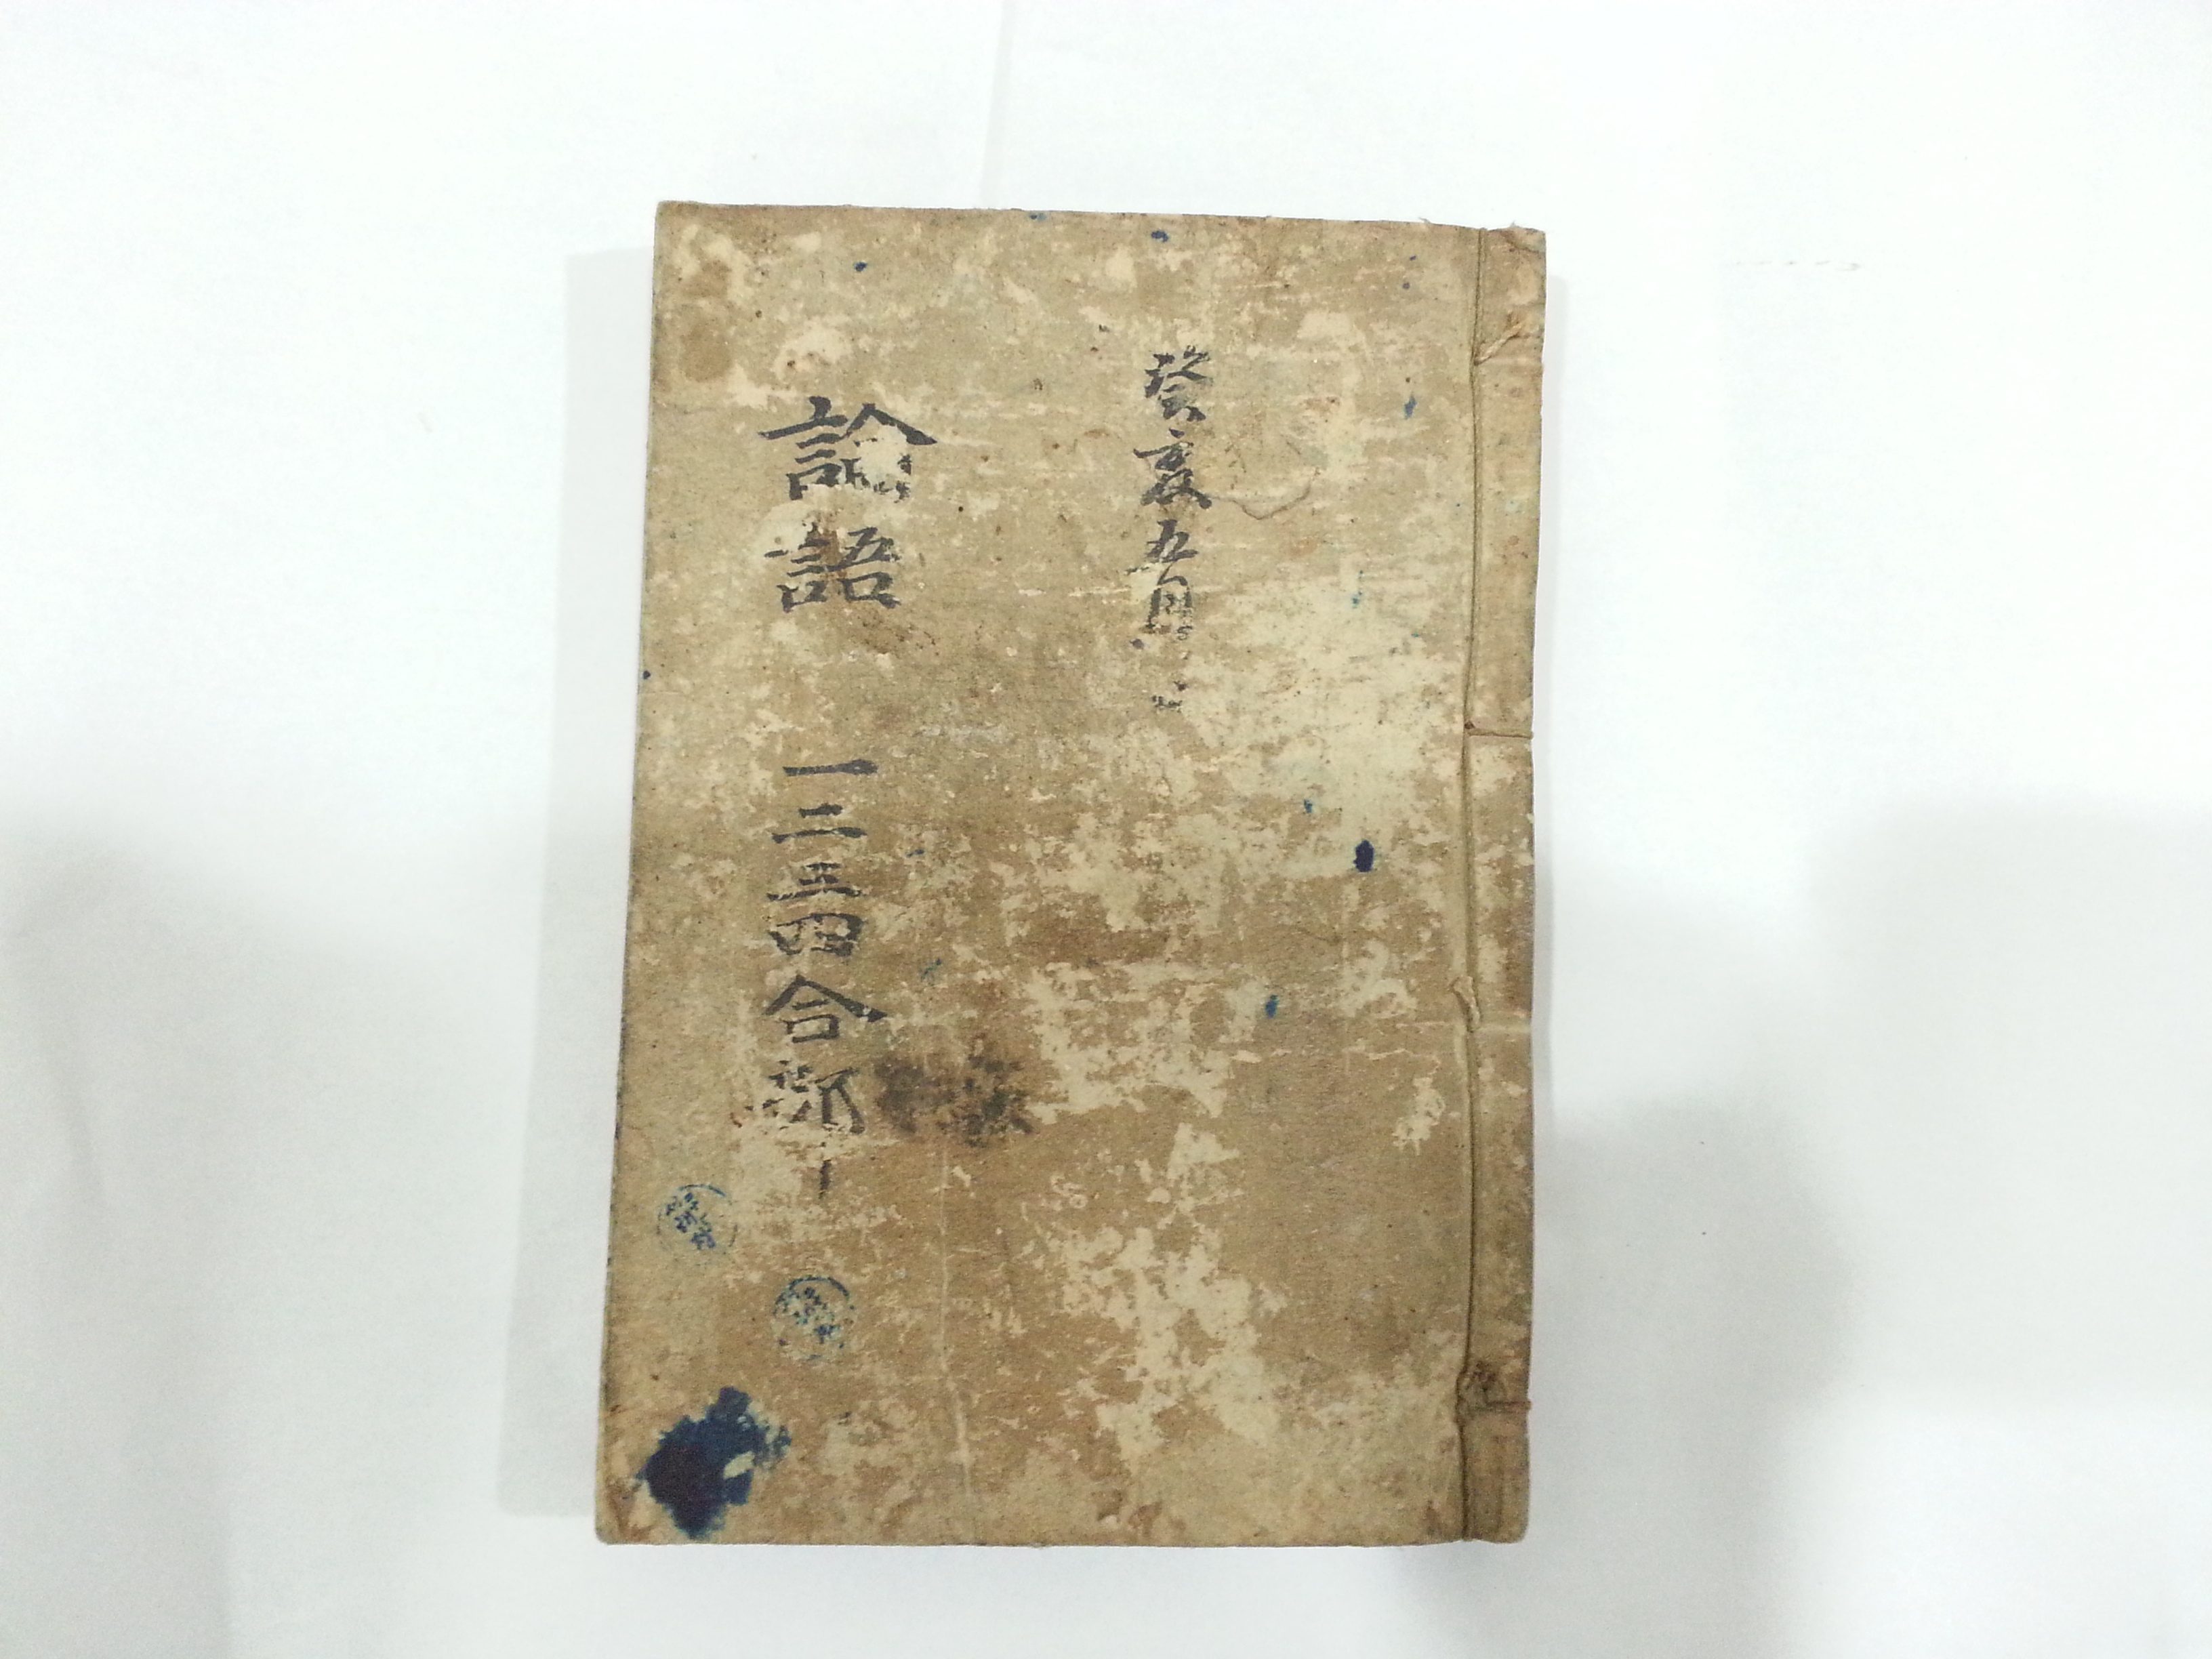 癸亥五月
論語 一二三四合部